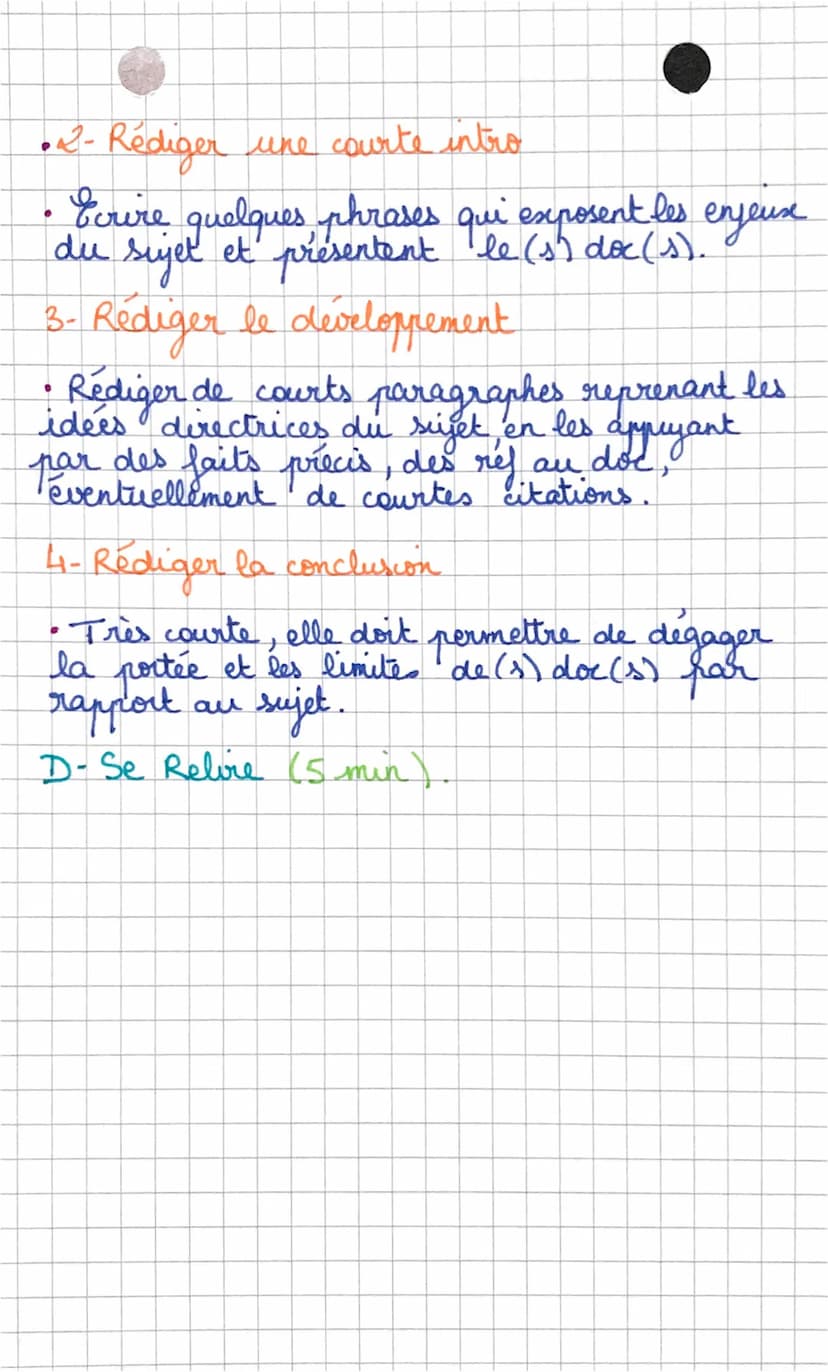 • 2- Rédiger une courte intro
• Ecrire quelques phrases qui exposent les enjeux
du sujet et présentent le(s) doc(s).
3- Rédiger le développement
• Rédiger de courts paragraphes reprenant les
idées directrices du sujet, en les appuyant
par des faits précis, des réf au doc,
éventuellement de courtes citations.
4- Rédiger la conclusion
• Très courte, elle doit permettre de dégager
la portée et les limites de(s) doc(s) par
rapport au sujet.
D- Se Relire (5 min).